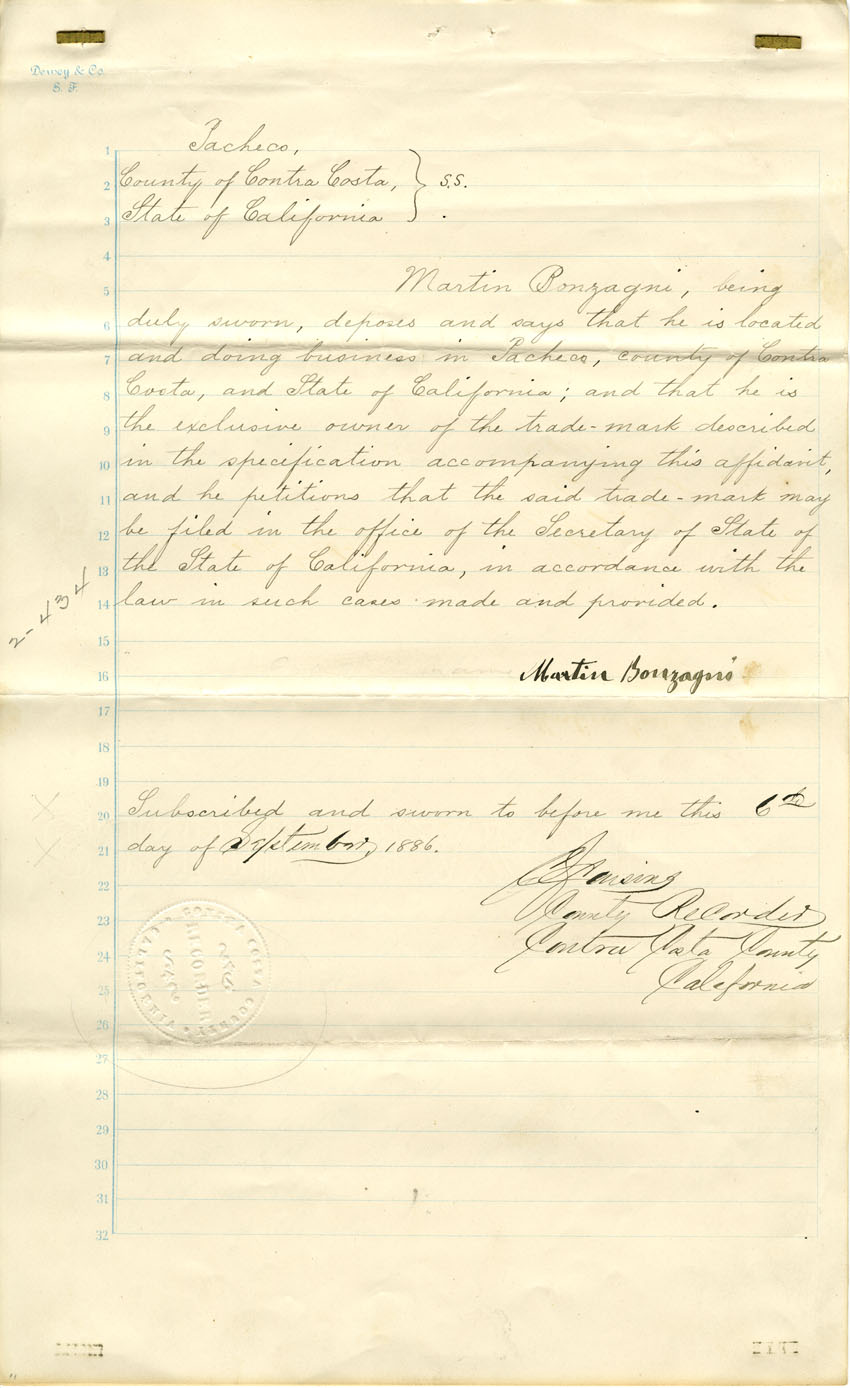 Dewey & Co.
S. F.
1 Pacheco,
2 County of Contra Costa, } s.s.
3 State of California
4
5 Martin Bonzagni, being
6 duly sworn, deposes and says that he is located
7 and doing business in Pacheco, county of Contra
8 Costa, and State of California; and that he is
9 the exclusive owner of the trade-mark described
10 in the specification accompanying this affidavit,
11 and he petitions that the said trade-mark may
12 be filed in the office of the Secretary of State of
13 the State of California, in accordance with the
14 law in such cases made and provided.
2-434
15
16 Martin Bonzagni
17
18
19
20 Subscribed and sworn to before me this 6th
21 day of September, 1886.
22
23 County Recorder
24 Contra Costa County
25 California
CONTRA COSTA COUNTY
RECORDER
CALIFORNIA
26
27
28
29
30
31
32